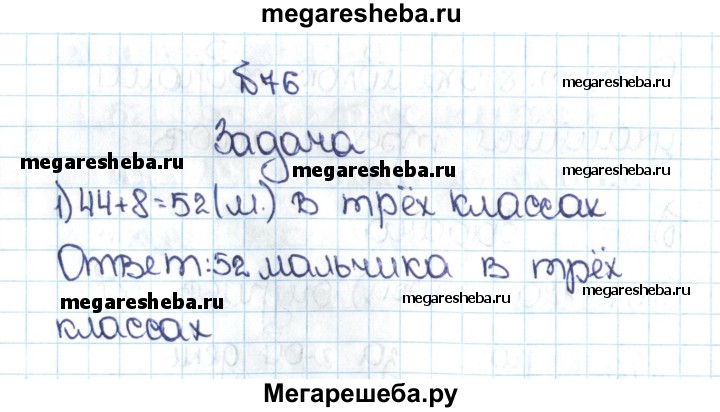 megaresheba.ru
Б76
megaresheba.ru
Задача
megaresheba.ru
megaresheba.ru
megaresheba.ru
1) 44+8=52(м.) в трёх классах
Ответ: 52 мальчика в трёх
megaresheba.ru
megaresheba.ru
megaresheba.ru
классах
Мегарешеба.ру